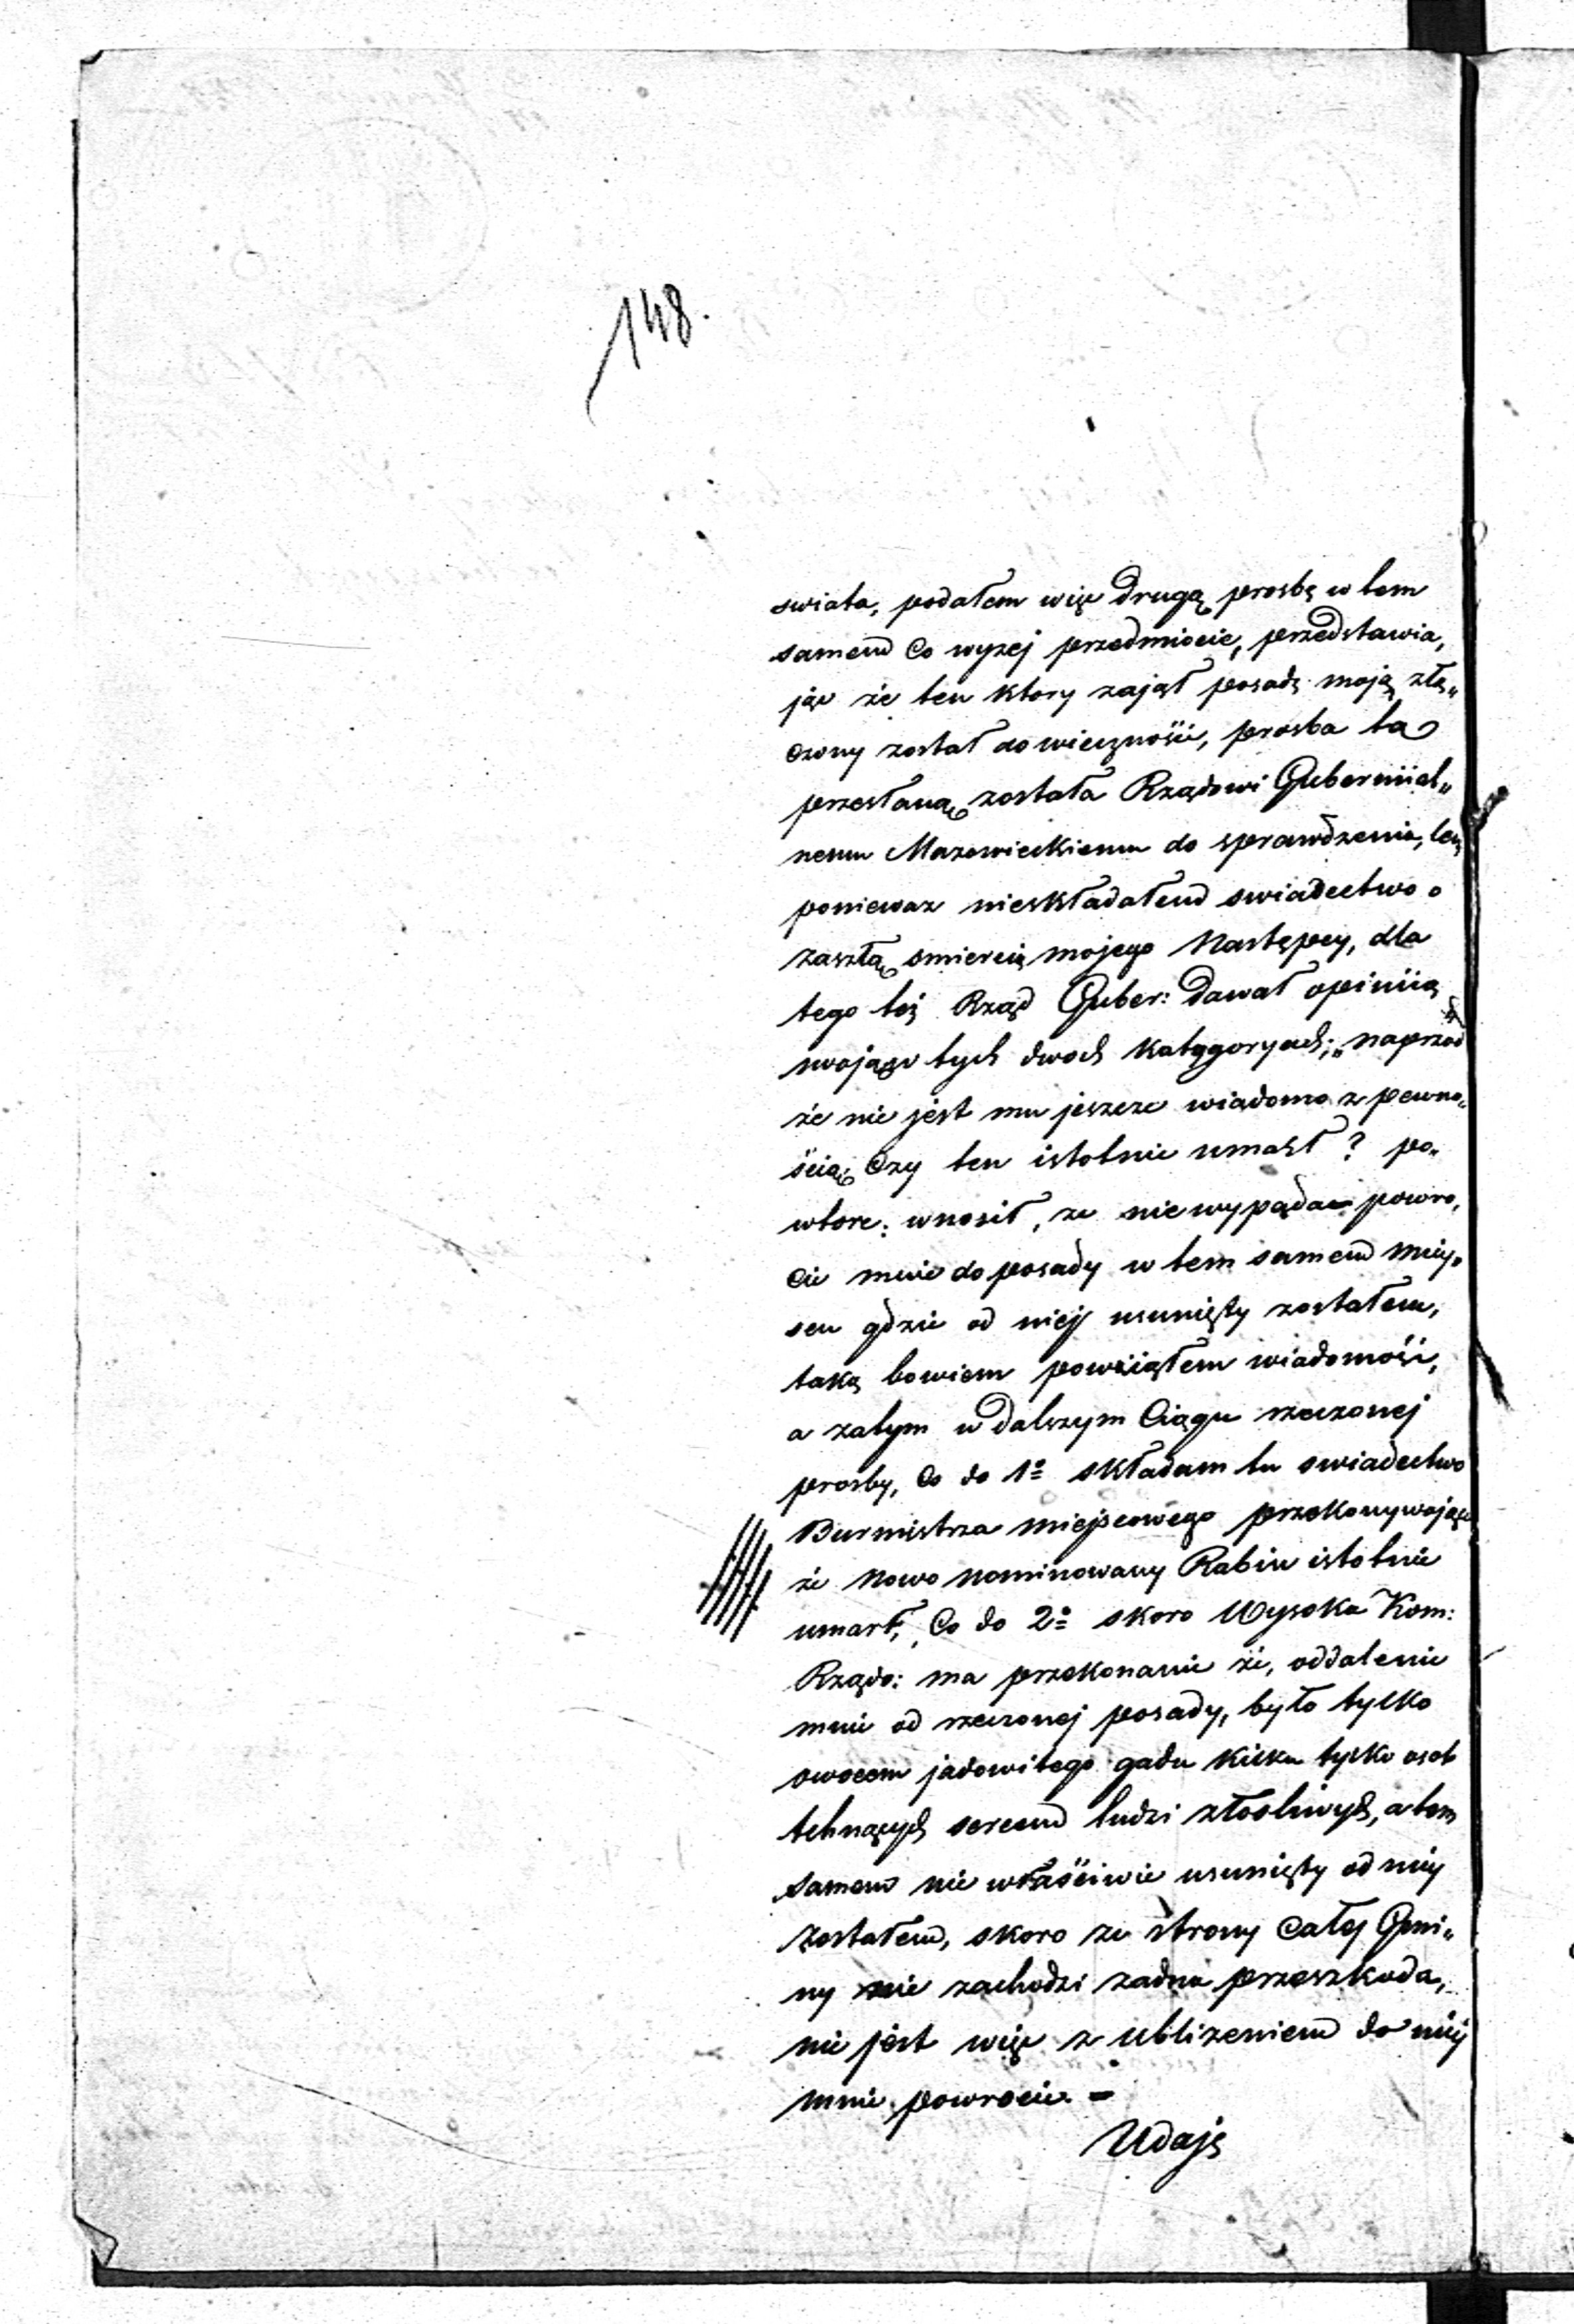 148.
swiata, podałem więc drugą prosbę w tem
samem co wyzej przedmiocie, przedstawia,
jąc że ten ktory zajął posadę moją złą„
czony został do wieczności, prosba ta
przesłaną została Rządowi Gubernial„
nemu Mazowieckiemu do sprawdzenia, lecz
poniewaz nieskładałem swiadectwo o
zaszłą smiercią mojego Następcy, dla
tego też Rząd Guber: dawał opinią
swoją w tych dwoch kategoryach; „naprzod
że nie jest mu jeszcze wiadomo z pewno„
ścią, czy ten istotnie umarł? po„
wtore: wnosił, ze nie wypada powro,
cic mnie do posady w tem samem miey„
scu gdzie od niej usunięty zostałem,
taką bowiem powziąłem wiadomość,
a zatym w dalszym Ciągu rzeczonej
prosby, Co do 1º składam tu swiadectwo
Burmistrza miejscowego przekonywające
że nowo nominowany Rabin istotnie
umarł, Co do 2º skoro Wysoka Kom:
Rządo: ma przekonanie że, oddalenie
mnie od rzeczonej posady, było tylko
owocem jadowitego gadu kilku tylko osob
tchnących sercem ludzi złosliwych, a tem
samem nie właściwie usunięty od niey
zostałem, skoro ze strony całej Gmi„
ny nie zachodzi zadna przeszkoda,
nie jest więc z ubliżeniem do niey
mnie powrocic =
Udaję